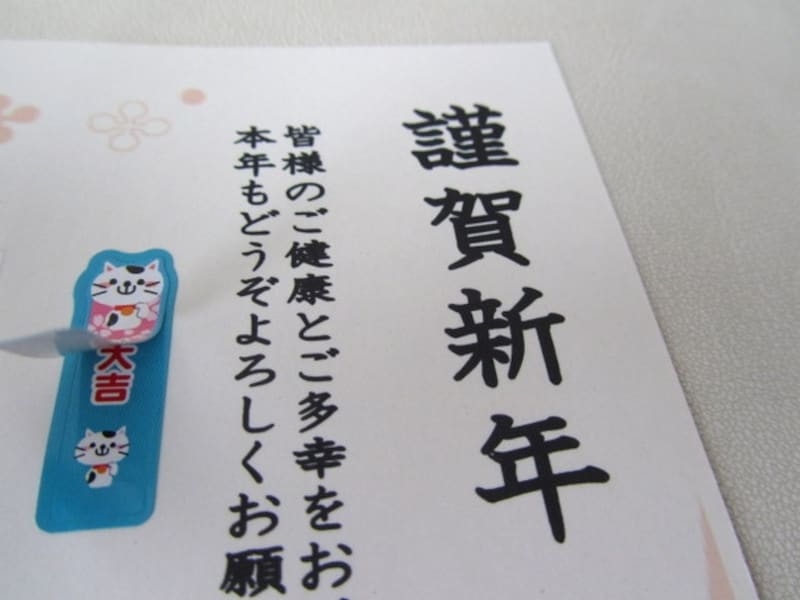 謹賀新年
皆様のご健康とご多幸をお
本年もどうぞよろしくお願
大吉